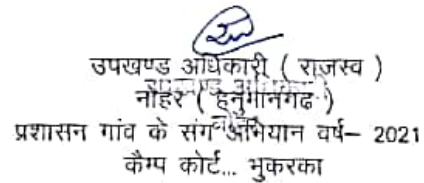 उपखण्ड अधिकारी ( राजस्व )
नोहर ( हनुमानगढ )
प्रशासन गांव के संग अभियान वर्ष– 2021
कैम्प कोर्ट... भुकरका